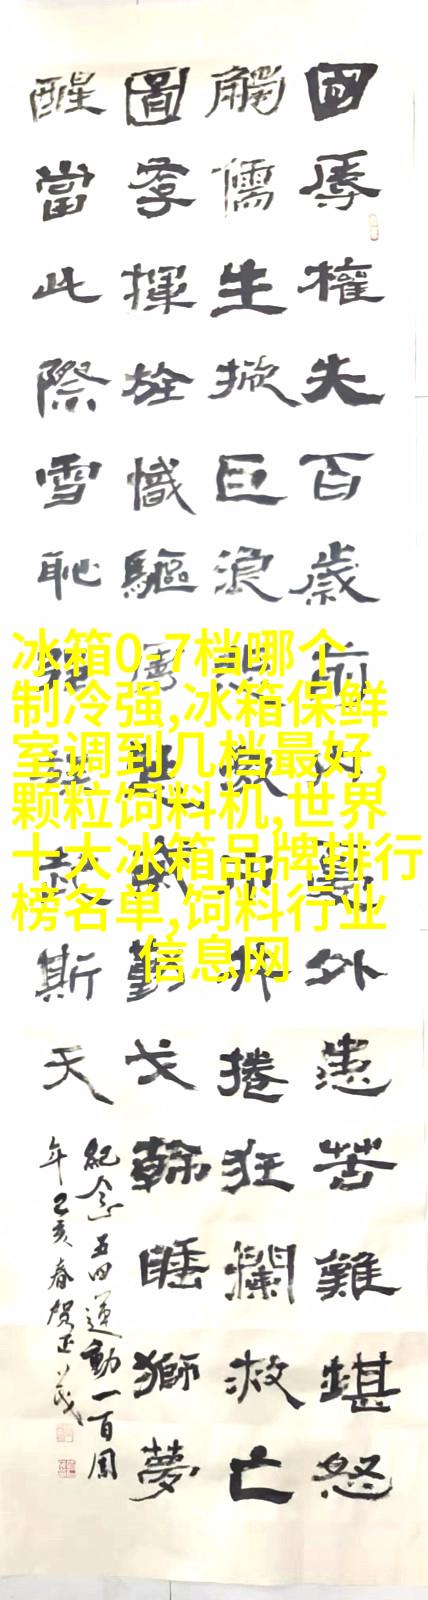 國辱權失百歲前內憂外患苦難堪怒
觸儒生掀巨浪捲狂瀾救亡
圖存揮旌幟驅戈睡獅夢
醒當此際雪恥強斯天
紀念五四運動一百周
年己亥春贺正茂
冰箱0-7档哪个
制冷强,冰箱保鲜
室调到几档最好,
颗粒饲料机,世界
十大冰箱品牌排行
榜名单,饲料行业
信息网